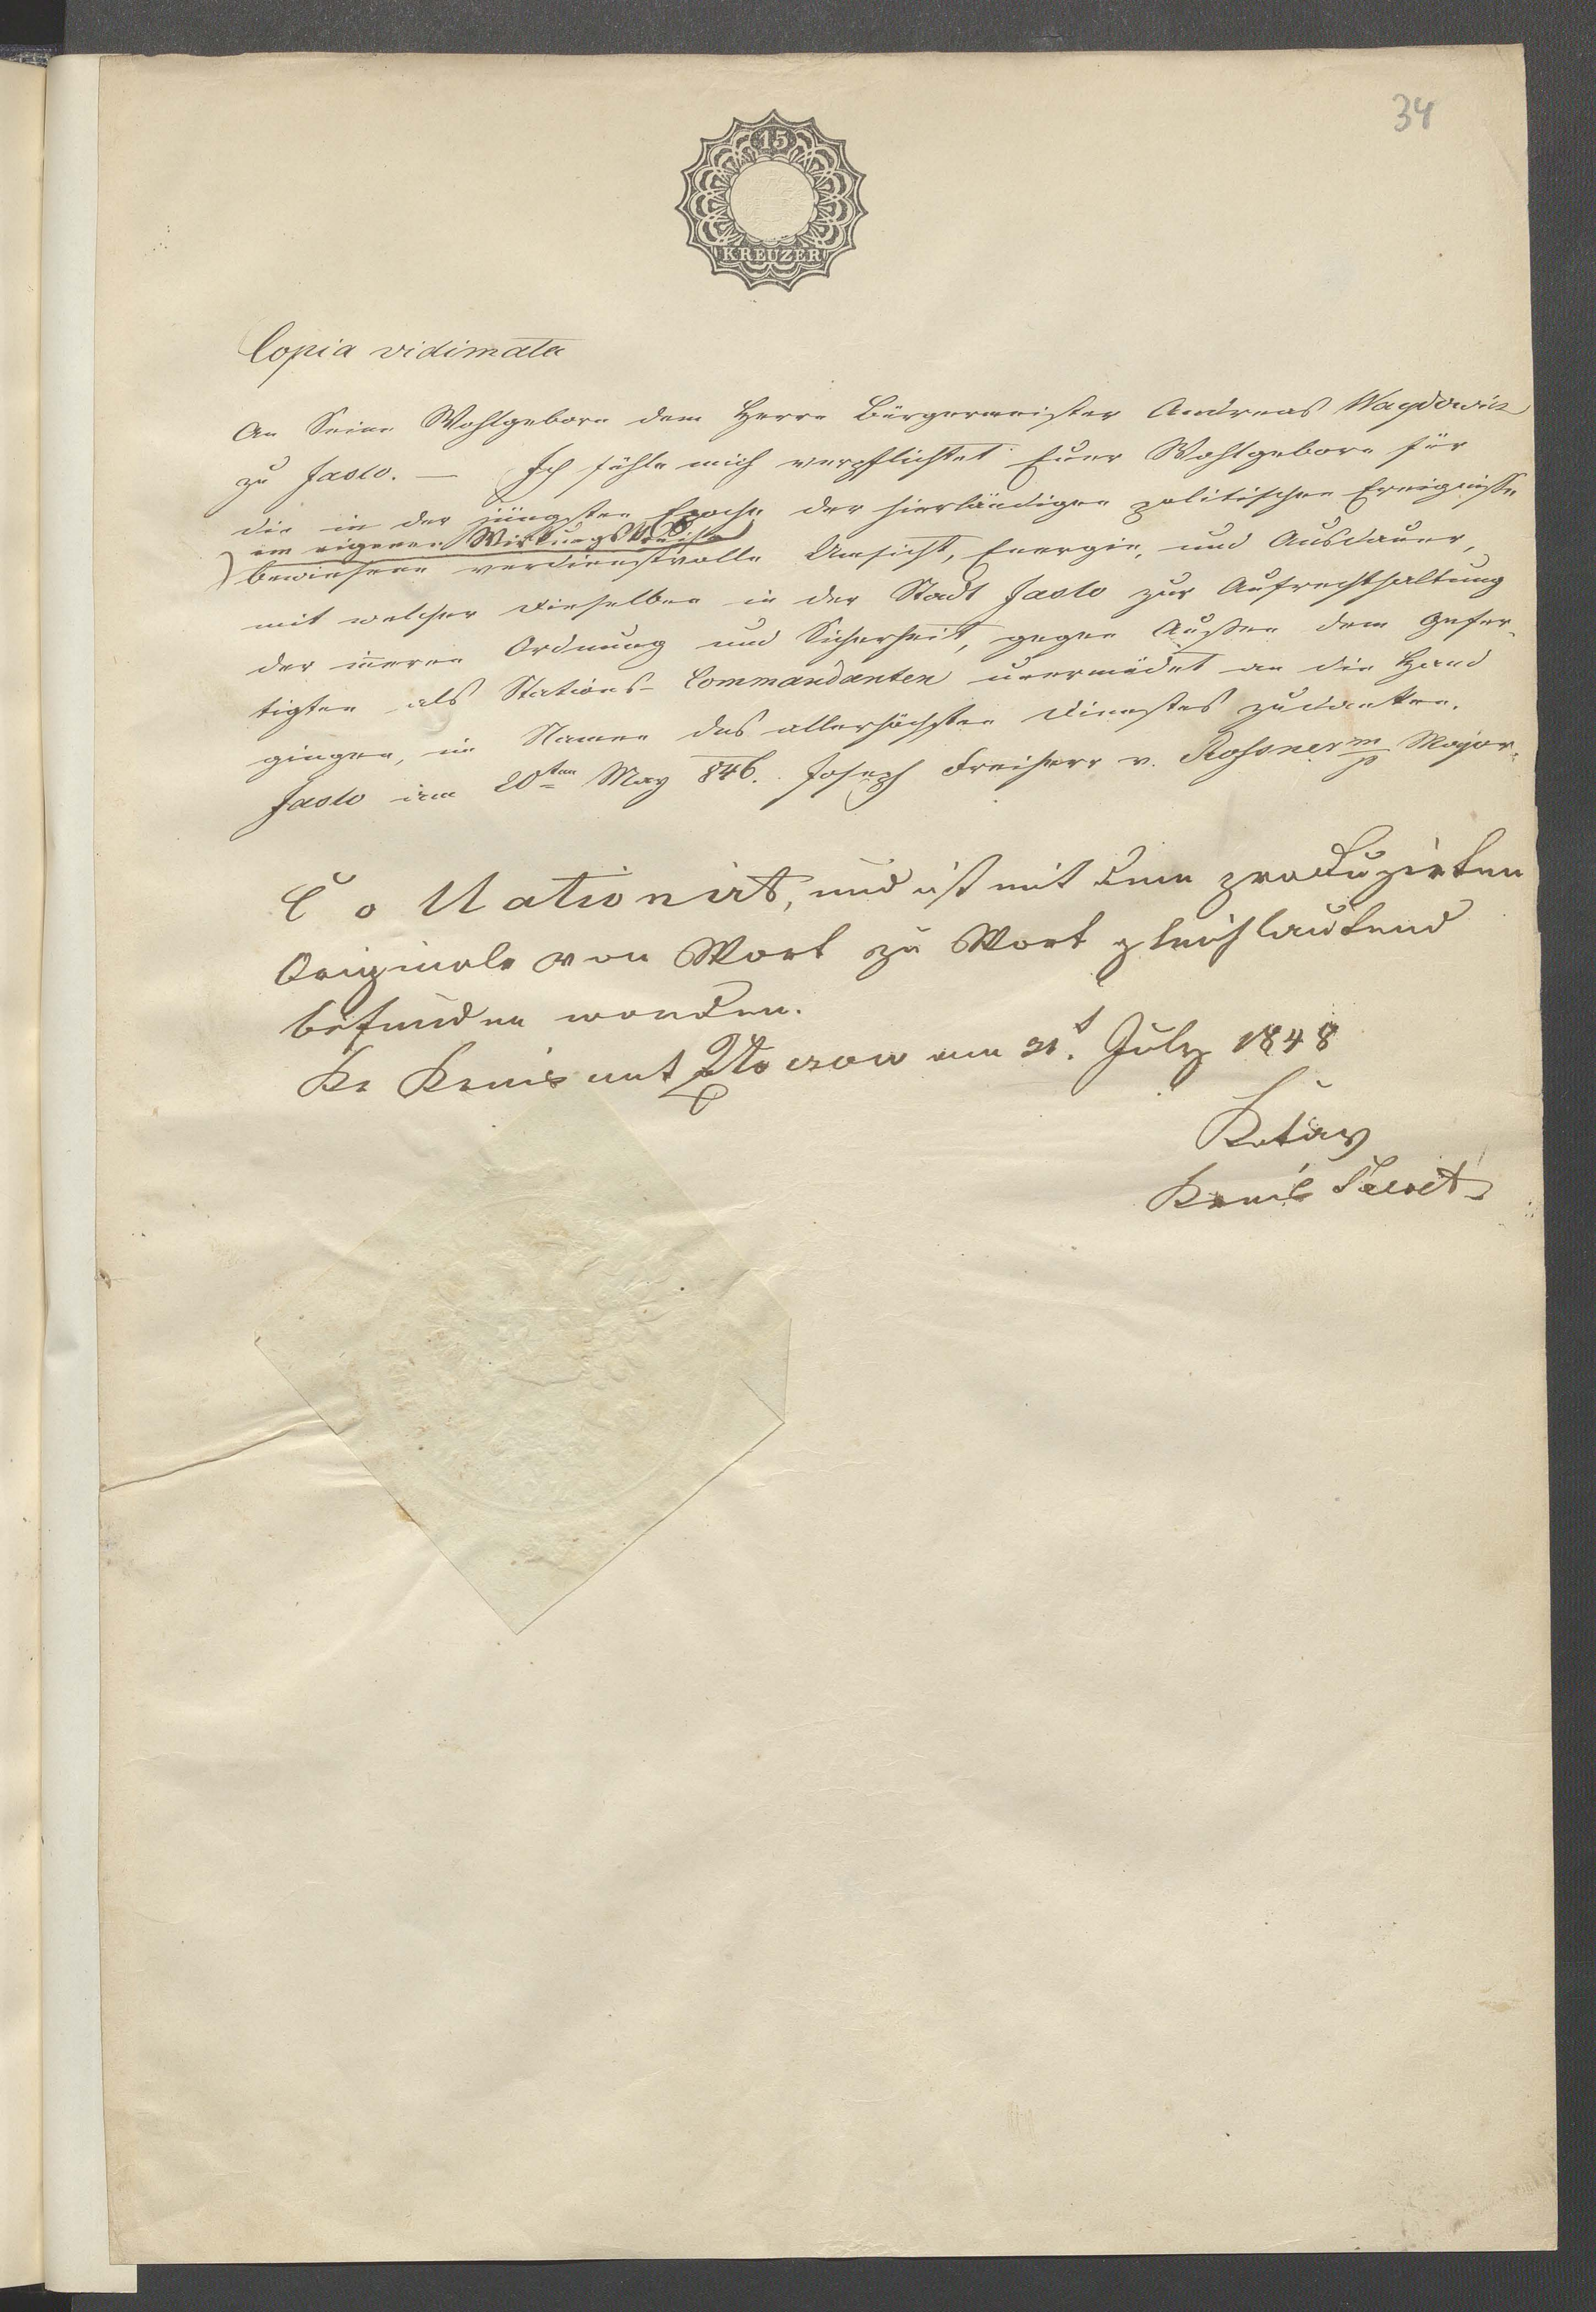 34
15
KREUZER
Copia vidimata
An Seine Wohlgeborn dem Herrn Bürgermeister Andreas
zu Jaslo. — Ich fühle mich verpflichtet Euer Wohlgeborn für
die in der jüngsten Epoche der hierländigen politischen Ereignisse
im eigenen Wirkungskreise
bewiesene verdienstvolle Umsicht, Energie, und Ausdauer,
mit welcher dieselben in der Stadt Jaslo zur Aufrechthaltung
der innern Ordnung und Sicherheit, gegen Außen dem Gefer-
tigten als Stations-Commandanten unermüdet an die Hand
gingen, im Namen des allerhöchsten Dienstes zu danken.
Jaslo am 20ten May 846. Joseph Freiherr v. m/p Major.
Collationirt, und ist mit dem produzirten
Originale von Wort zu Wort gleichlautend
befunden worden.
Kr Kreisamt Złoczow am 31t. July 1848
Kreis